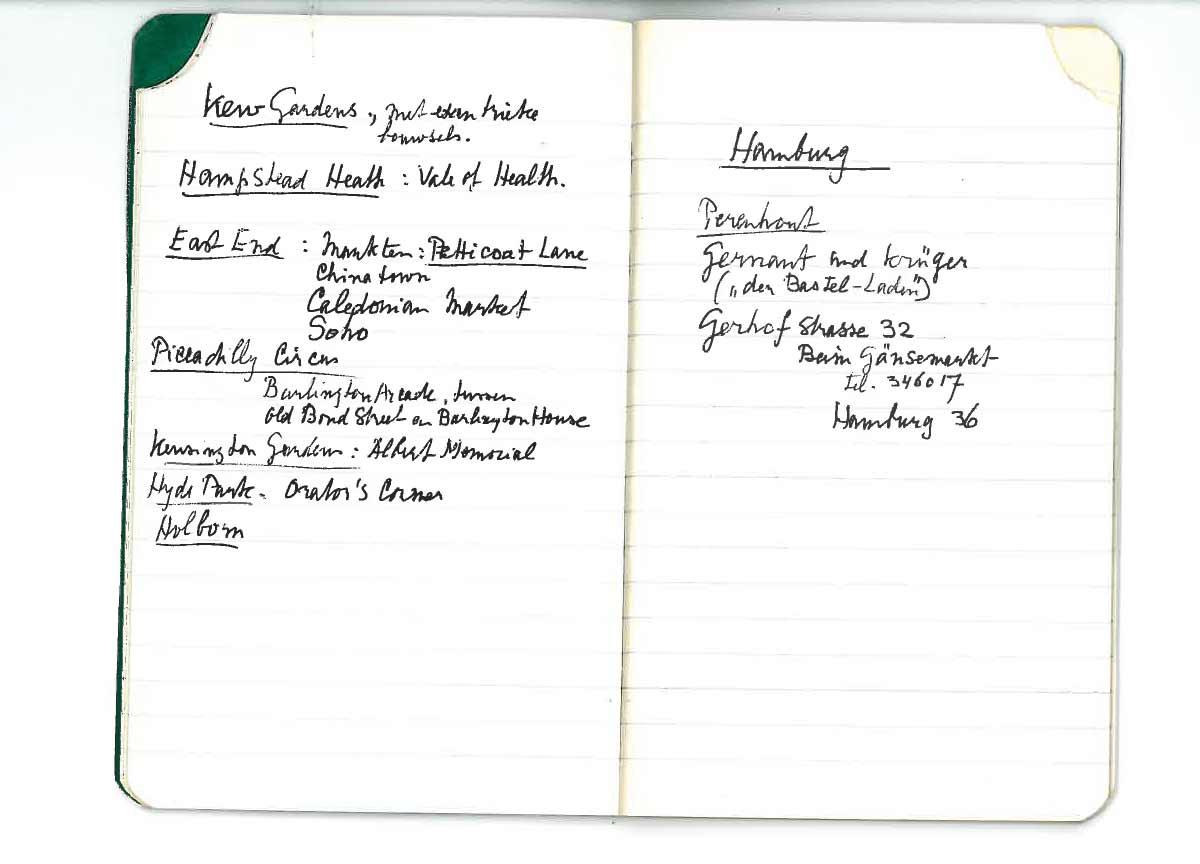 Kew Gardens, met
bouwsels.
Hampstead Heath : Vale of Health.
East End : Markten: Petticoat Lane
Chinatown
Caledonian Market
Soho
Piccadilly Circus
Burlington Arcade, tussen
Old Bond Street en Burlington House
Kensington Gardens: Albert Memorial
Hyde Park - Orator's Corner
Holborn
Hamburg
Perenhout
Gernant und Krüger
("der Bastel-Laden")
Gerhof Strasse 32
Beim Gänsemarkt
tel. 346017
Hamburg 36